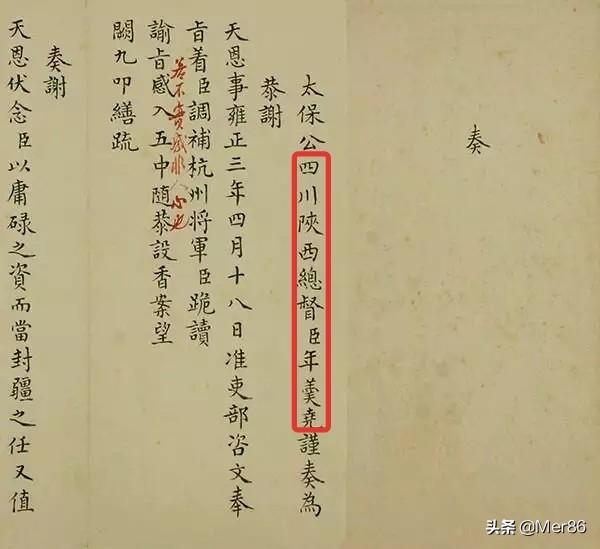 奏
太保公四川陝西總督臣年羹堯謹奏為
恭謝
天恩事雍正三年四月十八日准吏部咨文奉
旨着臣調補杭州將軍臣跪讀
若不實感非人心也
諭旨感入五中隨恭設香案望
闕九叩繕疏
奏謝
天恩伏念臣以庸碌之資而當封疆之任又值
头条 @Mer86